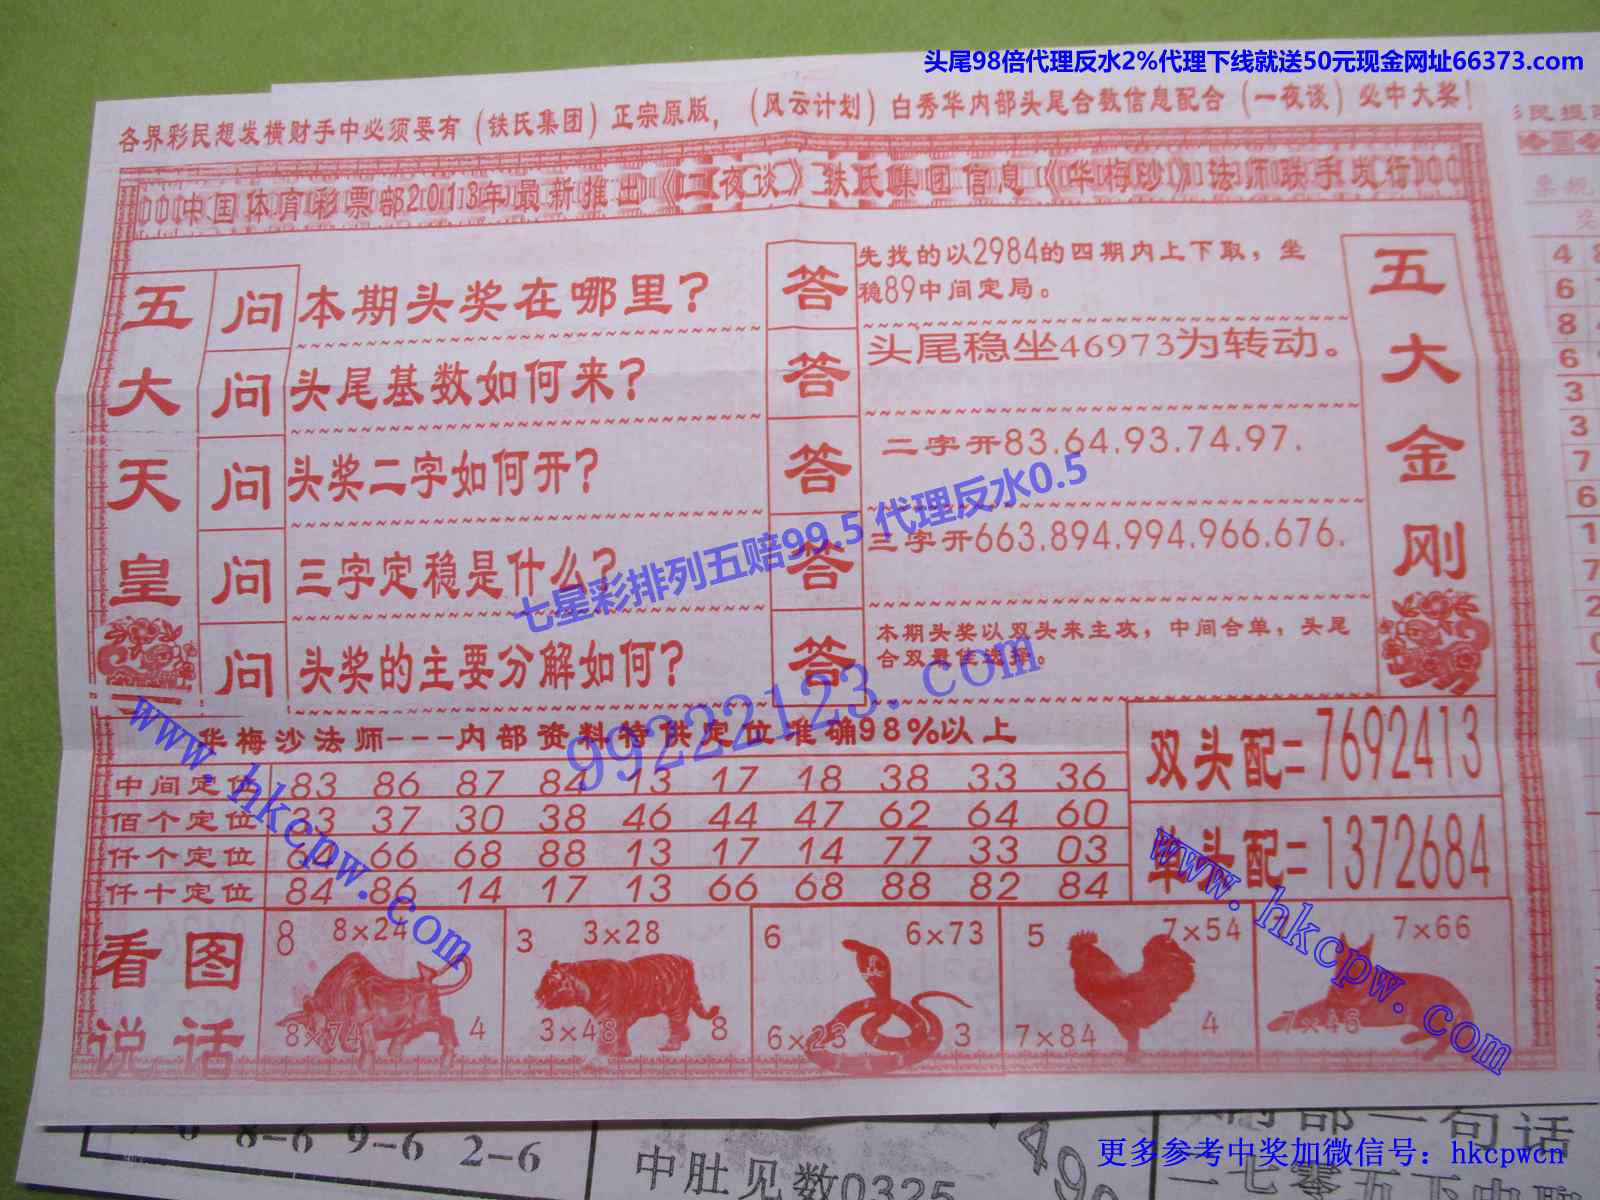 头尾98倍代理反水2%代理下线就送50元现金网址66373.com
各界彩民想发横财手中必须要有（铁氏集团）正宗原版，（风云计划）白秀华内部头尾合数信息配合（一夜谈）必中大奖！
中国体育彩票部2013年最新推出《一夜谈》铁氏集团信息《华梅沙》法师联手发行
五大天皇
问 本期头奖在哪里？
答 先找的以2984的四期内上下取，坐
稳89中间定局。
问 头尾基数如何来？
答 头尾稳坐46973为转动。
问 头奖二字如何开？
答 二字开83.64.93.74.97.
问 三字定稳是什么？
答 三字开663.894.994.966.676.
问 头奖的主要分解如何？
答 本期头奖以双头来主攻，中间合单，头尾
合双最佳选择。
五大金刚
七星彩排列五赔99.5 代理反水0.5
99222123.com
www.hkcpw.com
华梅沙法师---内部资料特供定位准确98%以上
中间定位 83 86 87 84 13 17 18 38 33 36
佰个定位 33 37 30 38 46 44 47 62 64 60
仟个定位 64 66 68 88 13 17 14 77 33 03
仟十定位 84 86 14 17 13 66 68 88 82 84
双头配=7692413
单头配=1372684
www.hkcpw.com
看图
说话
8 8×24
8×74 4
3 3×28
3×48 8
6 6×73
6×23 3
5 7×54
7×84 4
7×66
7×46
8-6 9-6 2-6
中肚见数0325
部一句话
更多参考中奖加微信号：hkcpwcn